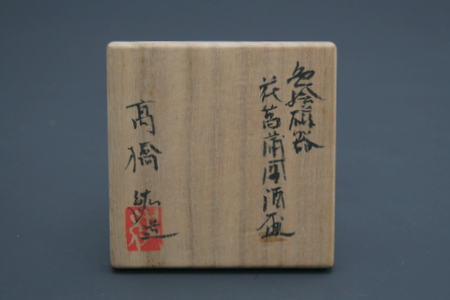 色絵磁器
花菖蒲図酒盃
高橋